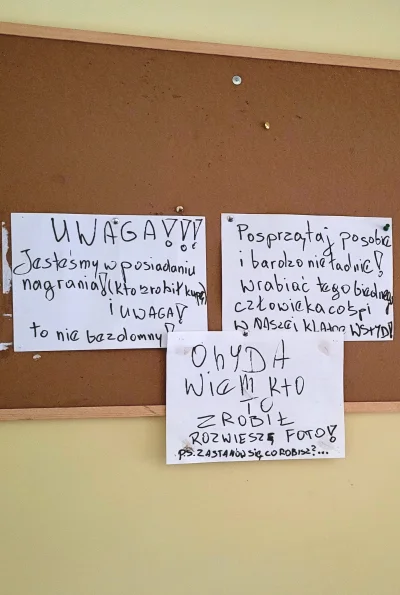 UWAGA!!!
Jesteśmy w posiadaniu
nagrania! (kto zrobił kupę)
i UWAGA!
to nie bezdomny!
Posprzątaj po sobie
i bardzo nieładnie!
wrabiać tego biednego
człowieka co śpi
w NASZEJ KLATCE WSTYD!
OhYDA
WIEM KTO
TO
ZROBIŁ
ROZWIESZĘ FOTO!
P.S. ZASTANÓW SIĘ, CO ROBISZ?...